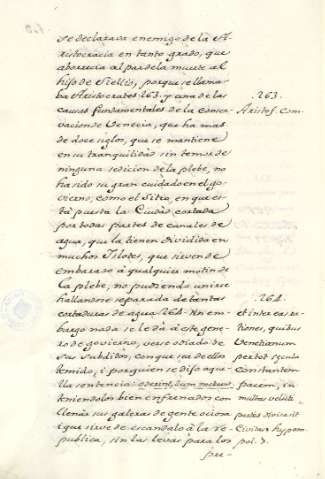 se declarava enemigo de la A-
ristocracia en tanto grado, que
aborrecia al par de la muerte al
hijo de
ba Aristocrates 263. y una de las
causas fundamentales de la conser-
vacion de Venecia, que ha mas
de doce siglos, que se mantiene
en su tranquilidad sin temor de
ninguna sedicion de la plebe, no
ha sido su gran cuidado en el go-
vierno, como el Sitio, en que es-
tá puesta la Ciudad cortada
por todas partes de canales de
agua, que la tienen dividida en
muchos Islotes, que sirven de
embarazo á qualquiera motin de
la plebe, no pudiendo unirse
hallandose separada de tantas
cortaduras de agua 264. Sin em-
bargo nada se le dá á este gene-
ro de govierno, verse odiado de
sus Subditos, con que sea de ellos
temido, i por quien se dijo aque-
lla sentencia: oderint, dum metuant,
teniendolos bien enfrenados con
llenar sus galeras de gente ociosa
que sirve de escandalo á la re-
publica, sin las levas para los
263.
Aristof. com
264.
et inter
tiones, quibus
Venetianum
per tot secula
constantem
pacem, in
multas veluti
partes divisit
Civitas
pol. 7.